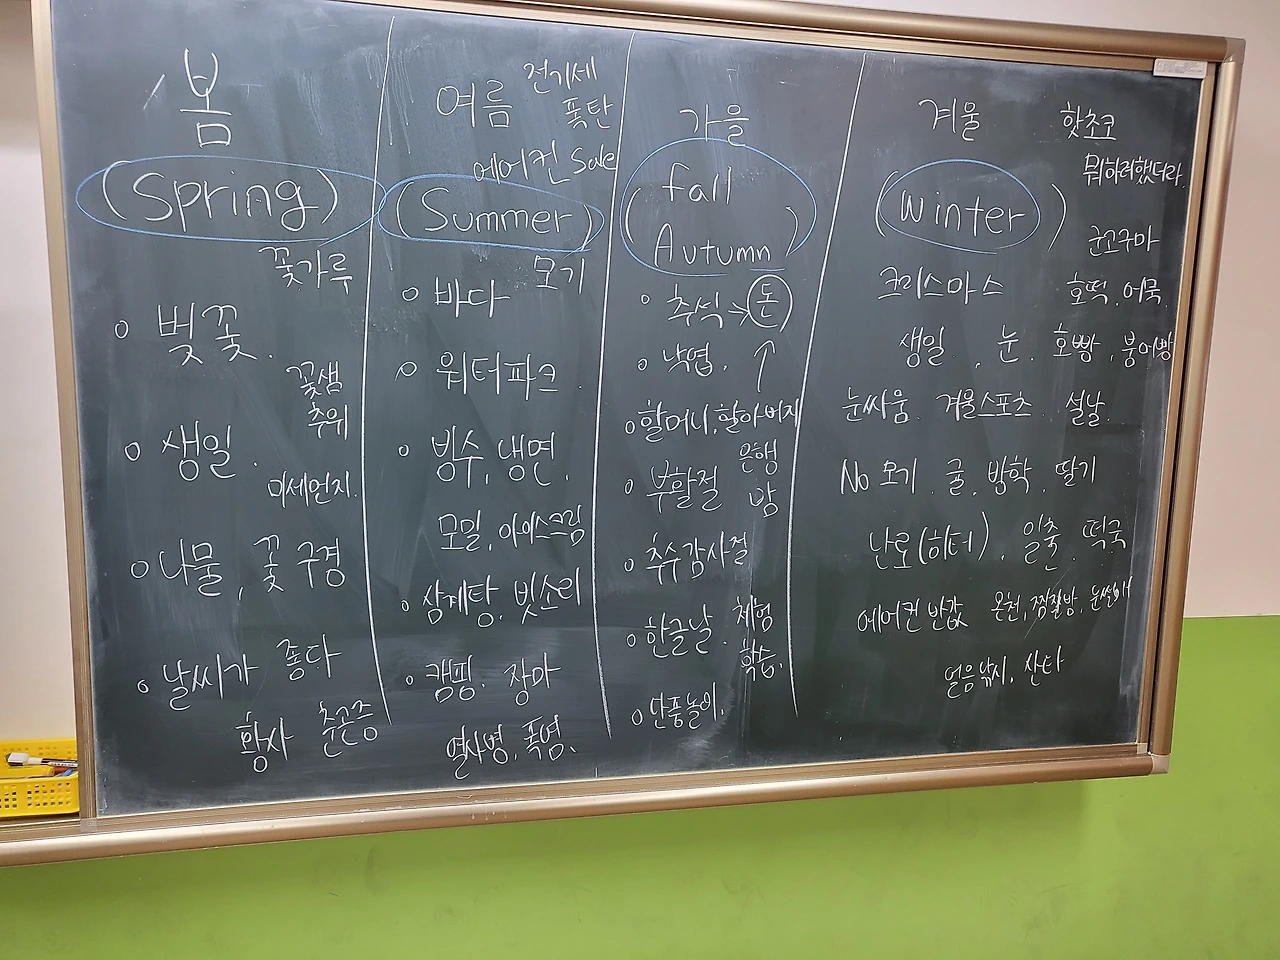 봄
(Spring)
꽃가루
○ 벚꽃.
꽃샘
추위
○ 생일.
미세먼지.
○ 나물, 꽃 구경
○ 날씨가 좋다
황사 춘곤증
여름 전기세
폭탄
에어컨 Sale
(Summer)
모기
○ 바다
○ 워터파크.
○ 빙수, 냉면,
모밀, 아이스크림
○ 삼계탕, 빗소리
○ 캠핑. 장마
열사병, 폭염,
가을
(Fall
Autumn)
○ 추석→돈
○ 낙엽. ↑
○ 할머니, 할아버지
은행
○ 부활절 밤
○ 추수감사절
○ 한글날. 체험
학습.
○ 단풍놀이.
겨울 핫초코
뭐하려했더라
(Winter)
군고구마
크리스마스 호떡, 어묵,
생일. 눈. 호빵, 붕어빵
눈싸움. 겨울스포츠. 설날.
No 모기. 귤, 방학, 딸기
난로(히터), 일출. 떡국
에어컨 반값 온천, 찜질방, 눈썰매
얼음낚시, 산타